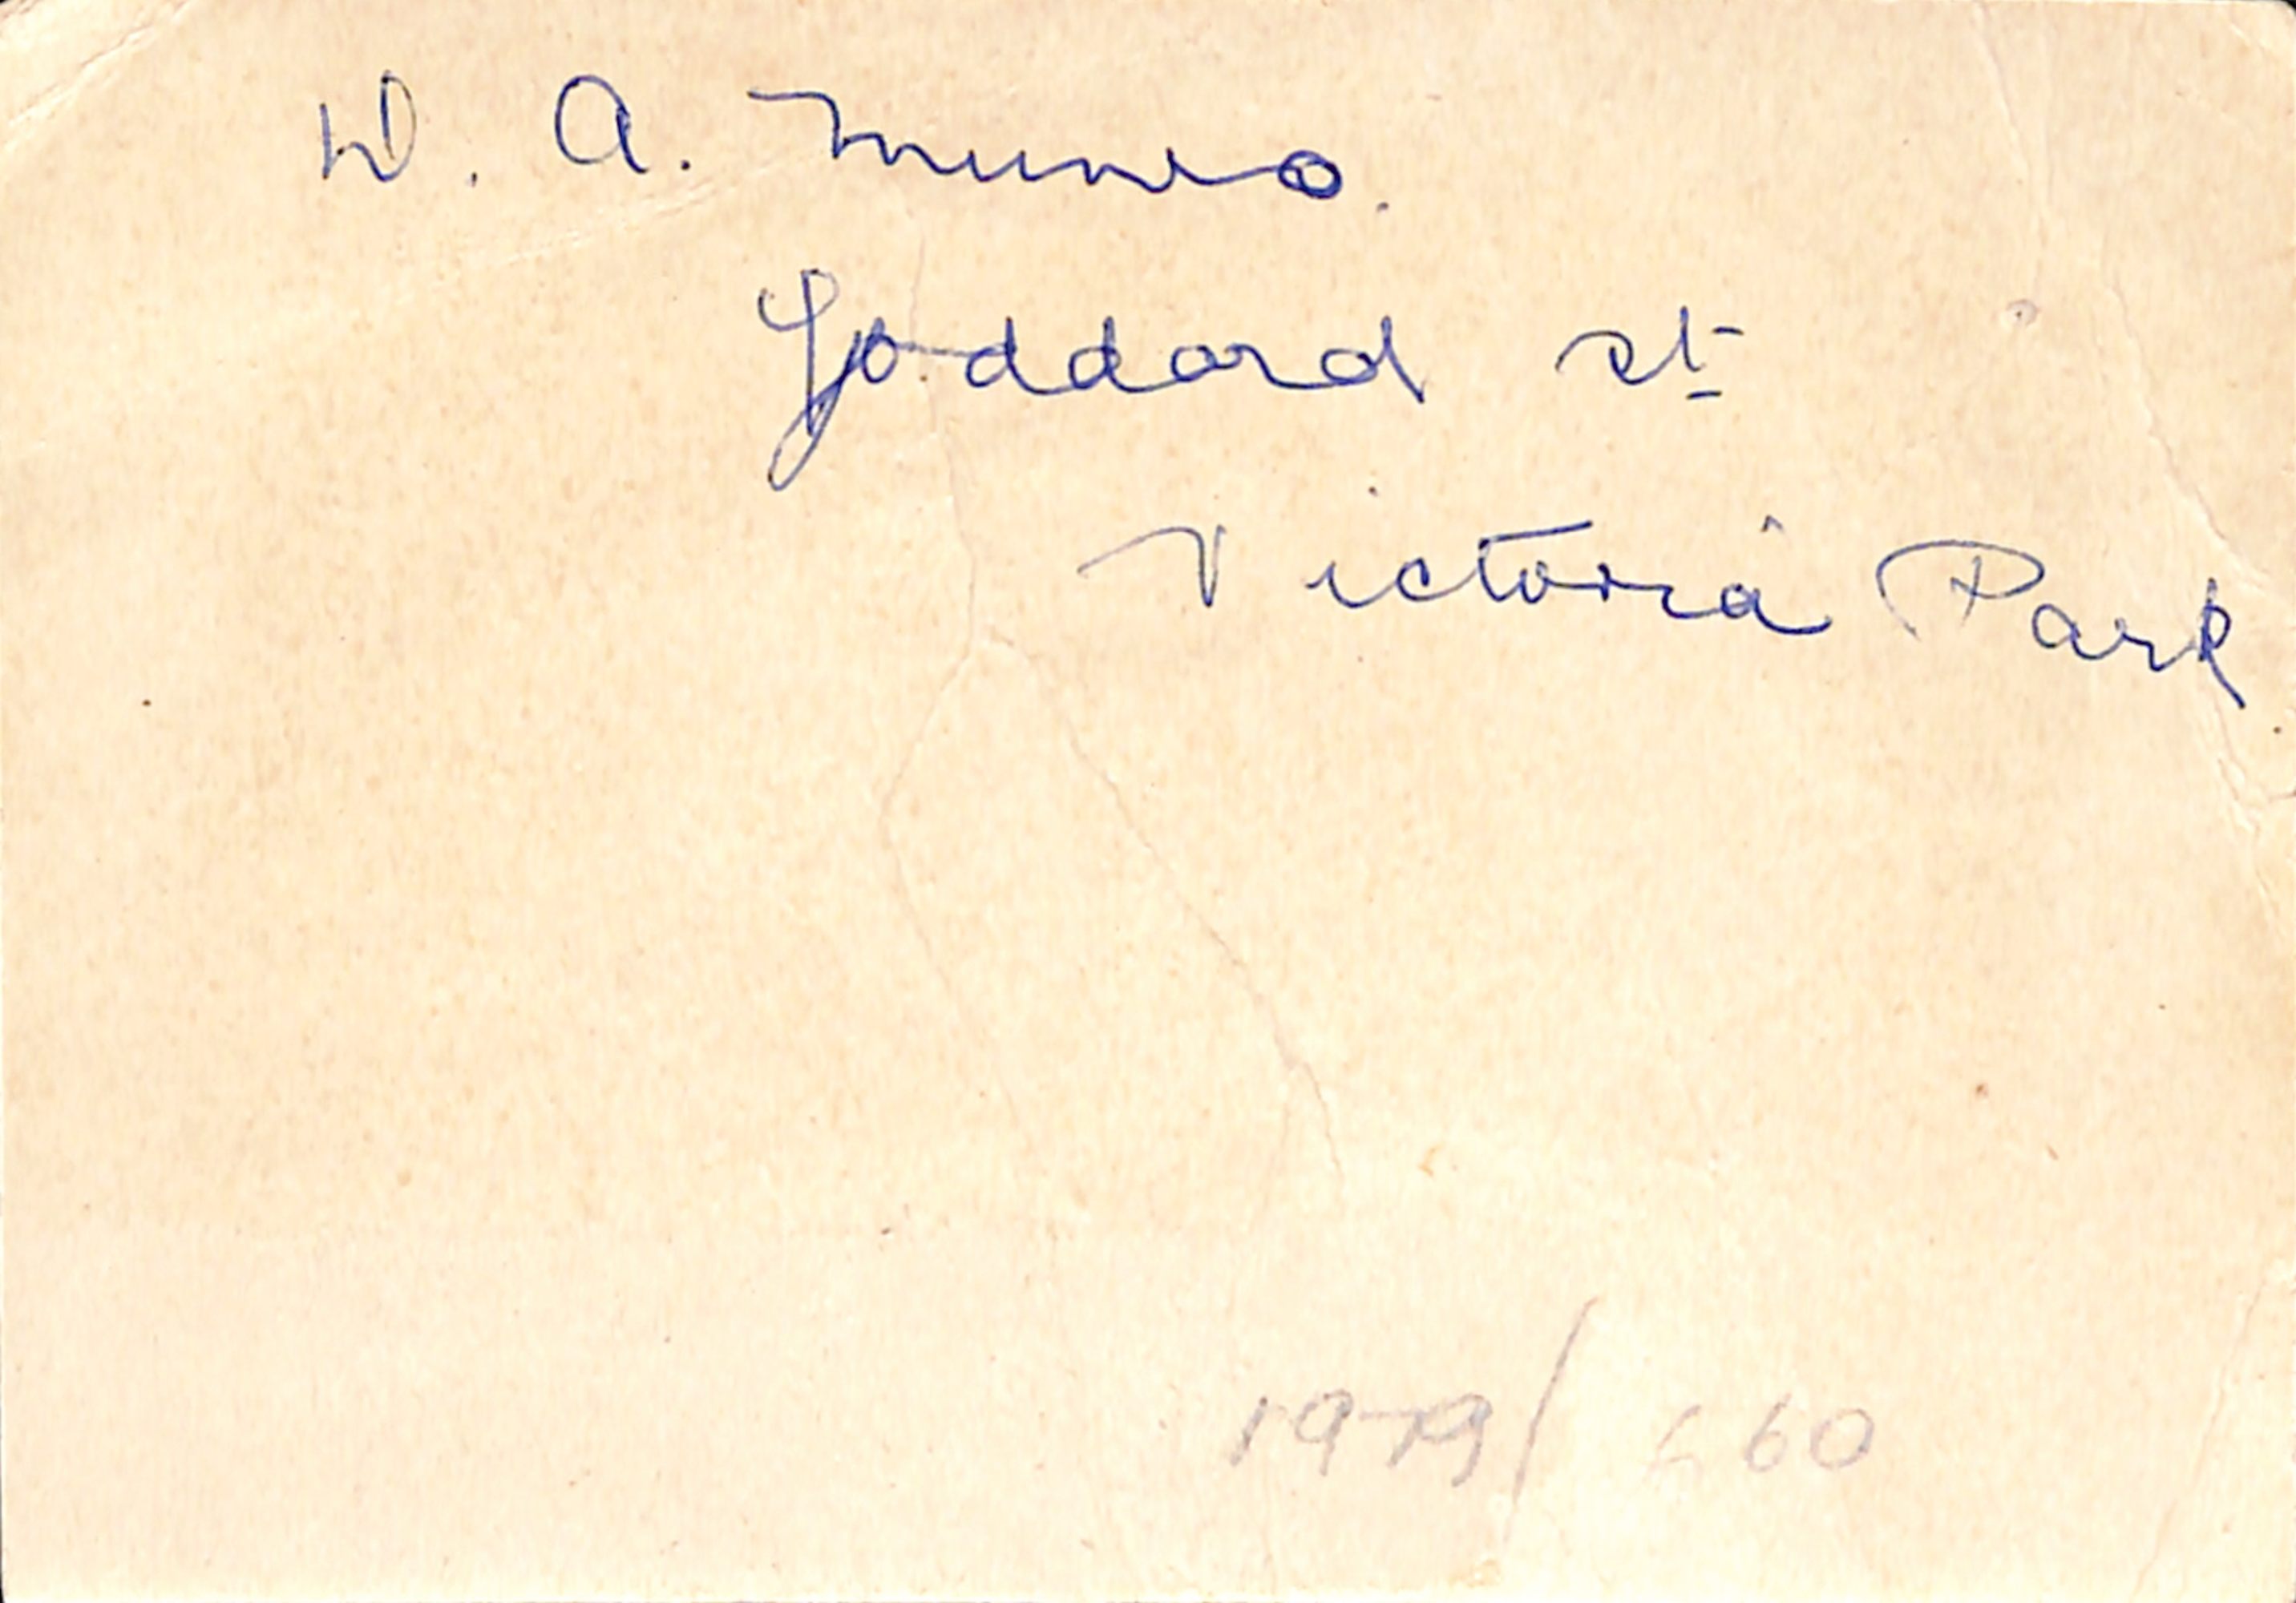 W. A. Munro.
Goddard St
Victoria Park.
1979/660